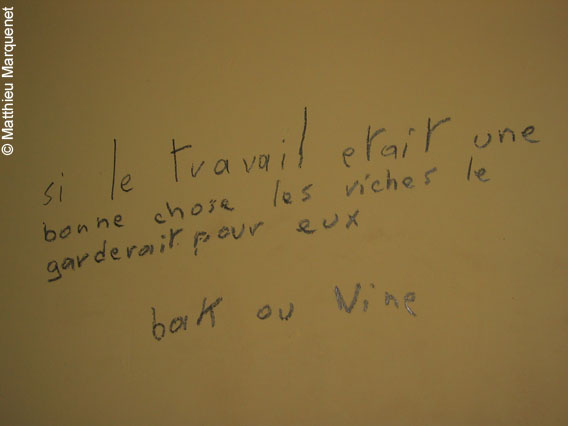 © Matthieu Marquenet
si le travail etait une
bonne chose les riches le
garderait pour eux
bak ou Nine